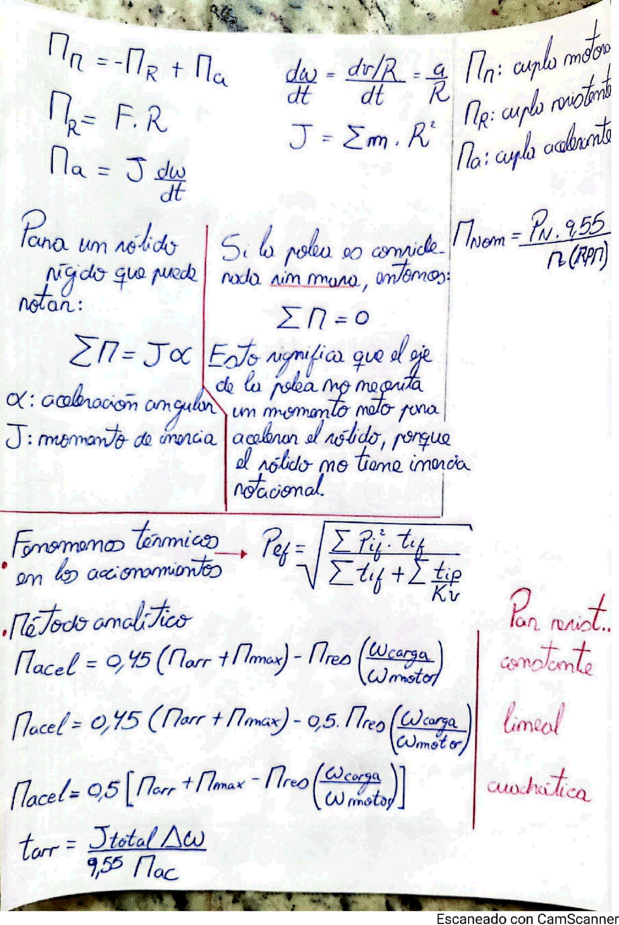 Π_Π = -Π_R + Π_a
Π_R = F.R
Π_a = J dω/dt
dω/dt = dv/R/dt = a/R
J = Σm . R²
Π_Π: cupla motora
Π_R: cupla resistente
Π_a: cupla acelerante
Π_Nom = P_N . 9,55 / n (RPΠ)
Para un sólido
rígido que puede
rotar:
ΣΠ = Jα
α: aceleración angular
J: momento de inercia
Si la polea es conside-
rada sin masa, entonces:
ΣΠ = 0
Esto significa que el eje
de la polea no necesita
un momento neto para
acelerar el sólido, porque
el sólido no tiene inercia
rotacional.
• Fenomenos térmicos
en los accionamientos
→ Pef = √(Σ Pif² . tif / (Σ tif + Σ tip/Kv))
• Método analítico
Πacel = 0,45 (Πarr + Πmax) - Πres (ωcarga/ωmotor)
Πacel = 0,45 (Πarr + Πmax) - 0,5 . Πres (ωcarga/ωmotor)
Πacel = 0,5 [Πarr + Πmax - Πres (ωcarga/ωmotor)]
tarr = Jtotal Δω / 9,55 Πac
Par resist..
constante
lineal
cuadrática
Escaneado con CamScanner